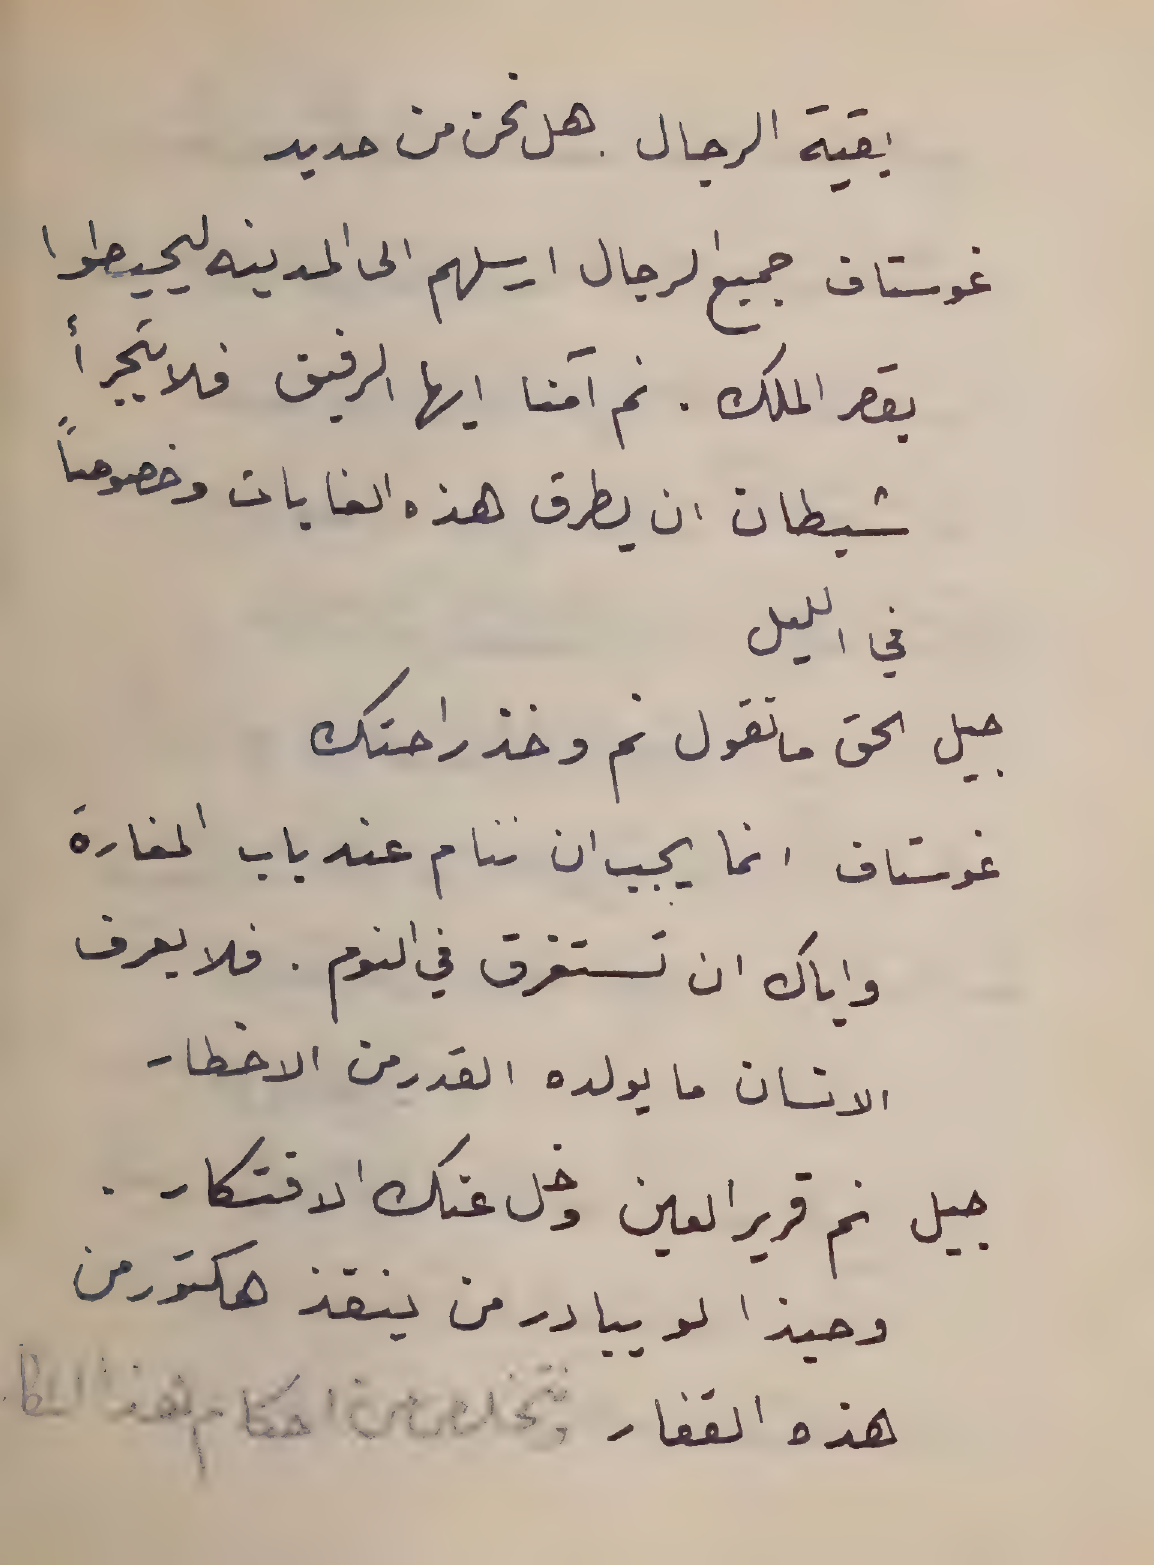 بقية الرجال . هل نحن من حديد
غوستاف جميع الرجال ارسلهم الى المدينه ليحيطوا
بقصر الملك . نم آمنا ايها الرفيق فلا يتجرأ
شيطان ان يطرق هذه الغابات وخصوصاً
في الليل
جيل الحق ما تقول نم وخذ راحتك
غوستاف انما يجب ان ننام عند باب المغارة
واياك ان تستغرق في النوم . فلا يعرف
الانسان ما يولده القدر من الاخطار
جيل نم قرير العين وخل عنك الافتكار .
وحبذا لو يبادر من ينقذ هكتور من
هذه القفار